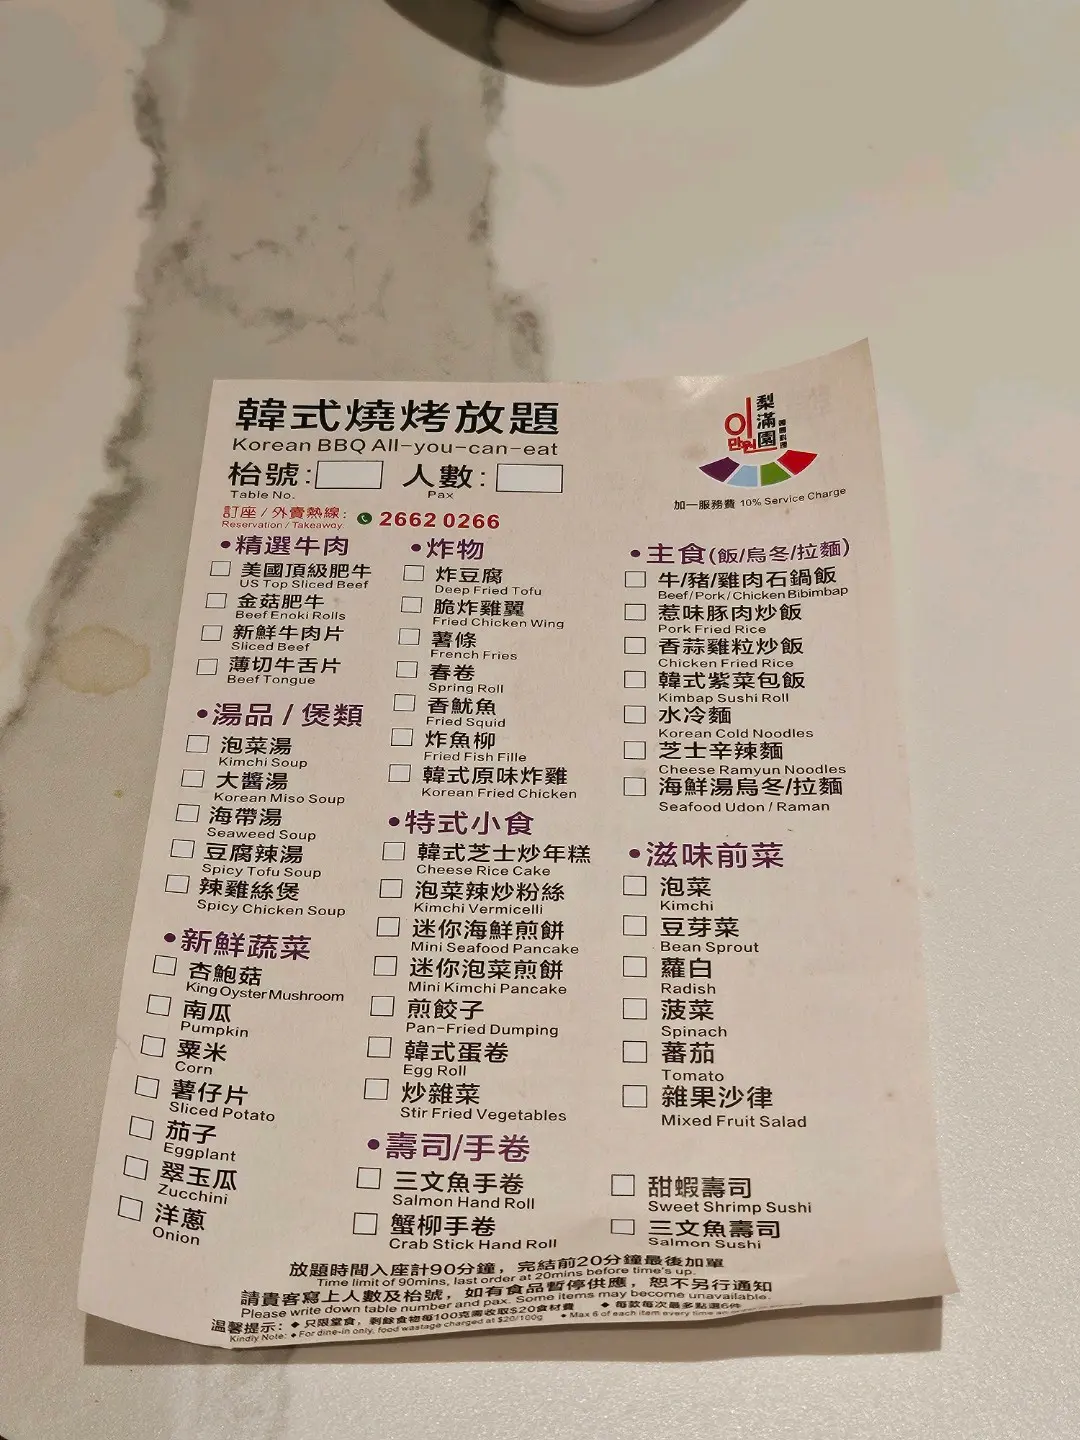 韓式燒烤放題
Korean BBQ All-you-can-eat
枱號: 人數:
Table No. Pax
訂座 / 外賣熱線: 2662 0266
Reservation / Takeaway:
이만원
梨滿園
韓國料理
加一服務費 10% Service Charge
•精選牛肉
美國頂級肥牛
US Top Sliced Beef
金菇肥牛
Beef Enoki Rolls
新鮮牛肉片
Sliced Beef
薄切牛舌片
Beef Tongue
•湯品 / 煲類
泡菜湯
Kimchi Soup
大醬湯
Korean Miso Soup
海帶湯
Seaweed Soup
豆腐辣湯
Spicy Tofu Soup
辣雞絲煲
Spicy Chicken Soup
•新鮮蔬菜
杏鮑菇
King Oyster Mushroom
南瓜
Pumpkin
粟米
Corn
薯仔片
Sliced Potato
茄子
Eggplant
翠玉瓜
Zucchini
洋蔥
Onion
•炸物
炸豆腐
Deep Fried Tofu
脆炸雞翼
Fried Chicken Wing
薯條
French Fries
春卷
Spring Roll
香魷魚
Fried Squid
炸魚柳
Fried Fish Fille
韓式原味炸雞
Korean Fried Chicken
•特式小食
韓式芝士炒年糕
Cheese Rice Cake
泡菜辣炒粉絲
Kimchi Vermicelli
迷你海鮮煎餅
Mini Seafood Pancake
迷你泡菜煎餅
Mini Kimchi Pancake
煎餃子
Pan-Fried Dumping
韓式蛋卷
Egg Roll
炒雜菜
Stir Fried Vegetables
•主食(飯/烏冬/拉麵)
牛/豬/雞肉石鍋飯
Beef/Pork/Chicken Bibimbap
惹味豚肉炒飯
Pork Fried Rice
香蒜雞粒炒飯
Chicken Fried Rice
韓式紫菜包飯
Kimbap Sushi Roll
水冷麵
Korean Cold Noodles
芝士辛辣麵
Cheese Ramyun Noodles
海鮮湯烏冬/拉麵
Seafood Udon / Raman
•滋味前菜
泡菜
Kimchi
豆芽菜
Bean Sprout
蘿白
Radish
菠菜
Spinach
蕃茄
Tomato
雜果沙律
Mixed Fruit Salad
•壽司/手卷
三文魚手卷
Salmon Hand Roll
蟹柳手卷
Crab Stick Hand Roll
甜蝦壽司
Sweet Shrimp Sushi
三文魚壽司
Salmon Sushi
放題時間入座計90分鐘，完結前20分鐘最後加單
Time limit of 90mins, last order at 20mins before time's up.
請貴客寫上人數及枱號，如有食品暫停供應，恕不另行通知
Please write down table number and pax. Some items may become unavailable.
溫馨提示: ◆ 只限堂食，剩餘食物每100克需收取$20食材費 ◆ 每款每次最多點選6件
Kindly Note: ◆ For dine-in only, food wastage charged at $20/100g ◆ Max 6 of each item every time